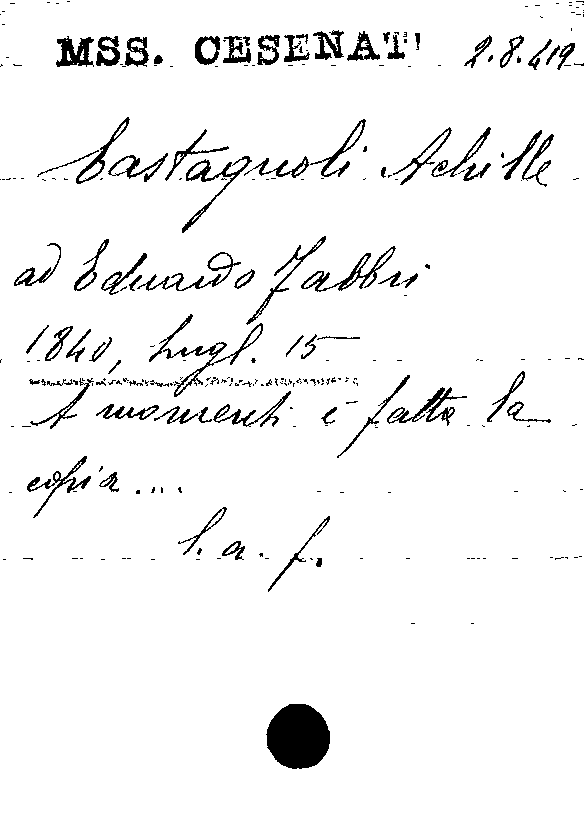 MSS. CESENATI 2.8.419
Castagnoli Achille
ad Eduardo Fabbri
1840, lugl. 15
A momenti è fatta la
copia....
l. a. f.